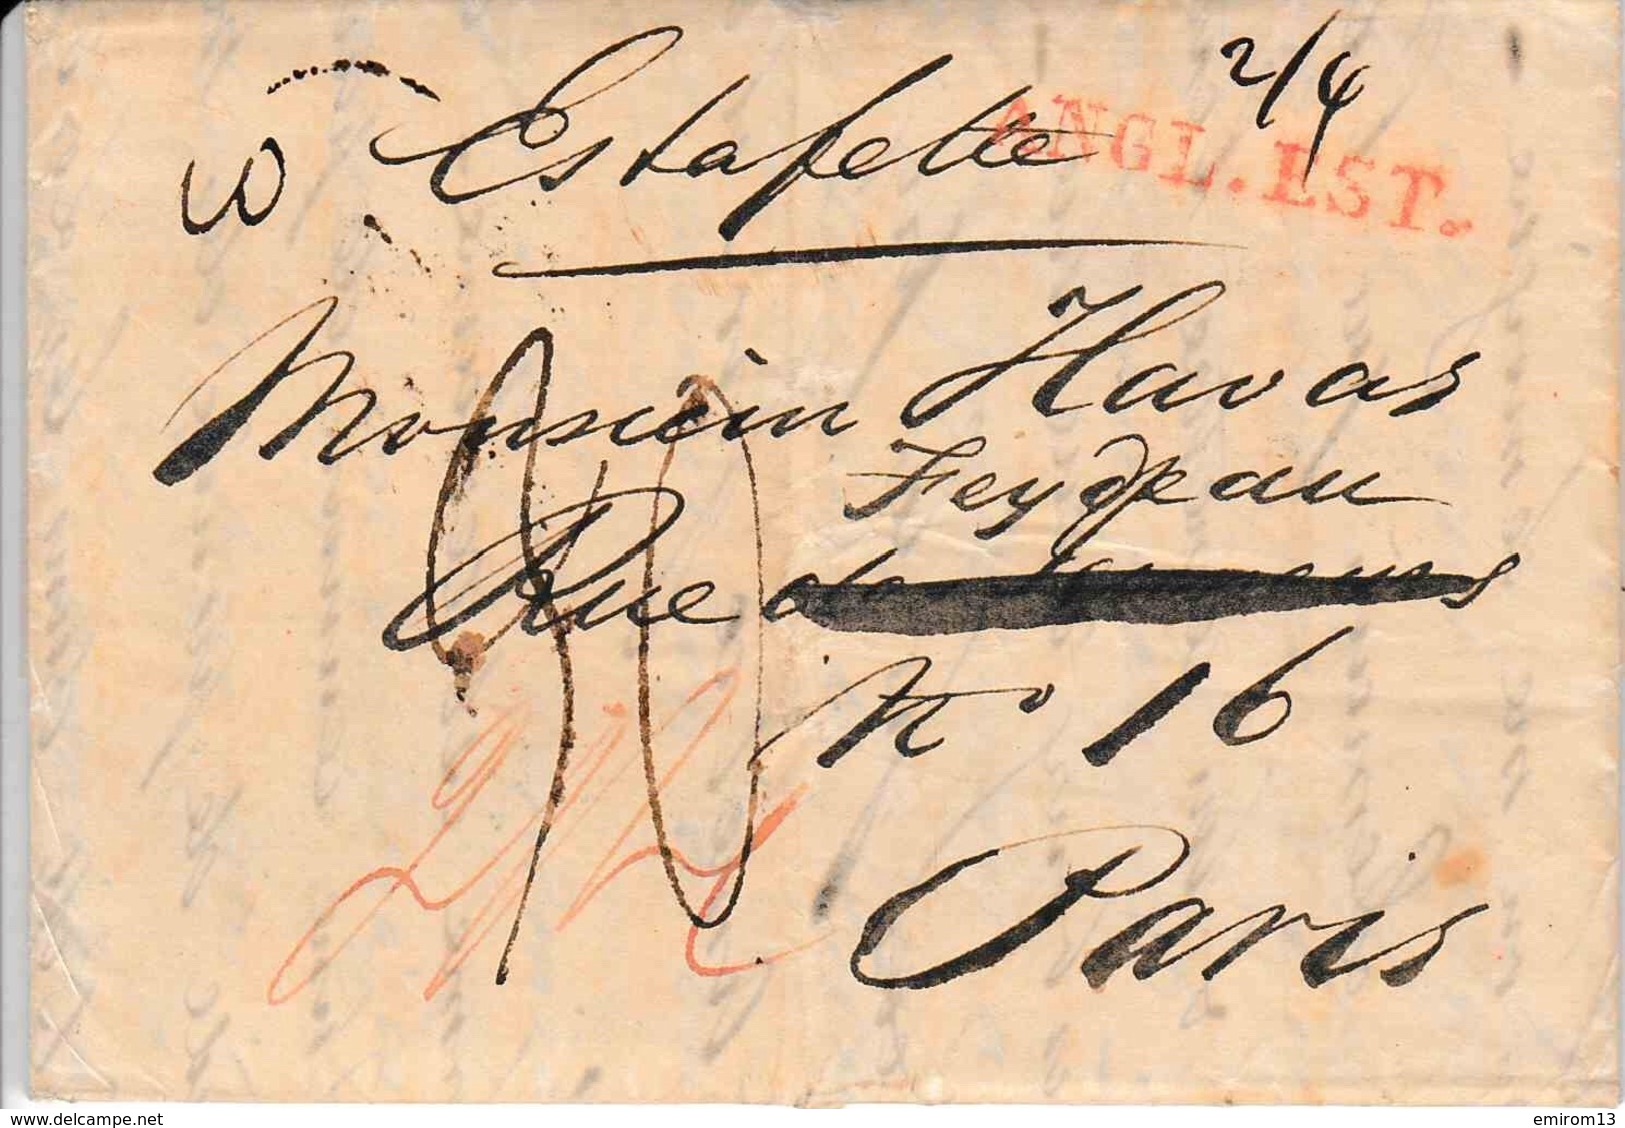 2/4
Estafette
ANGL. EST.
Monsieur Havas
Feydeau
Rue
No 16
Paris
www.delcampe.net
emirom13